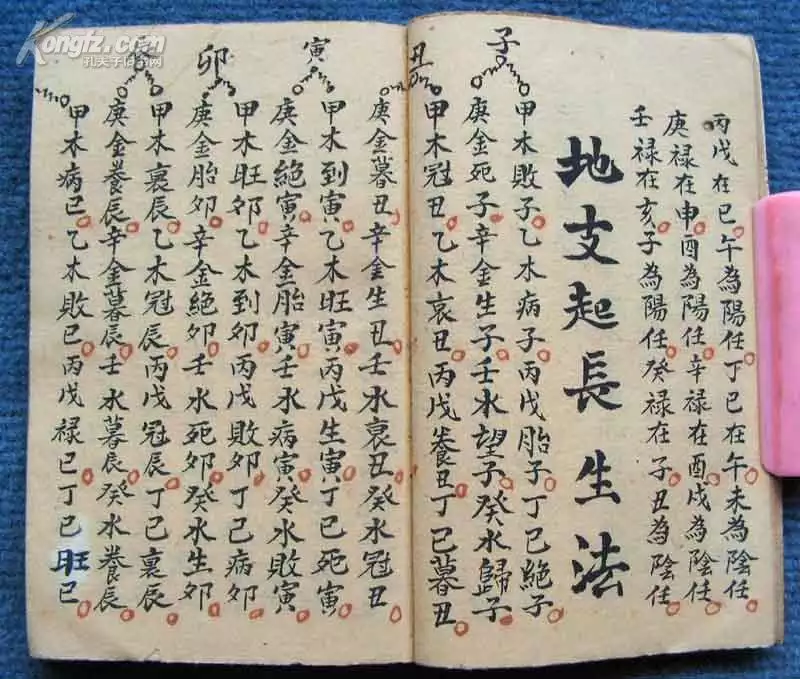 丙戊在巳午為陽任丁巳在午未為陰任
庚禄在申酉為陽任辛禄在酉戌為陰任
壬禄在亥子為陽任癸禄在子丑為陰任
地支起長生法
子
甲木敗子乙木病子丙戊胎子丁巳絕子
庚金死子辛金生子壬水望子癸水歸子
丑
甲木冠丑乙木哀丑丙戊養丑丁巳暮丑
庚金暮丑辛金生丑壬水裏丑癸水冠丑
寅
甲木到寅乙木旺寅丙戊生寅丁巳死寅
庚金絕寅辛金胎寅壬水病寅癸水敗寅
卯
甲木旺卯乙木到卯丙戊敗卯丁己病卯
庚金胎卯辛金絕卯壬水死卯癸水生卯
甲木裏辰乙木冠辰丙戊冠辰丁巳裏辰
庚金養辰辛金暮辰壬水暮辰癸水養辰
甲木病巳乙木敗巳丙戊禄巳丁巳旺巳
Kongfz.com
孔夫子旧书网